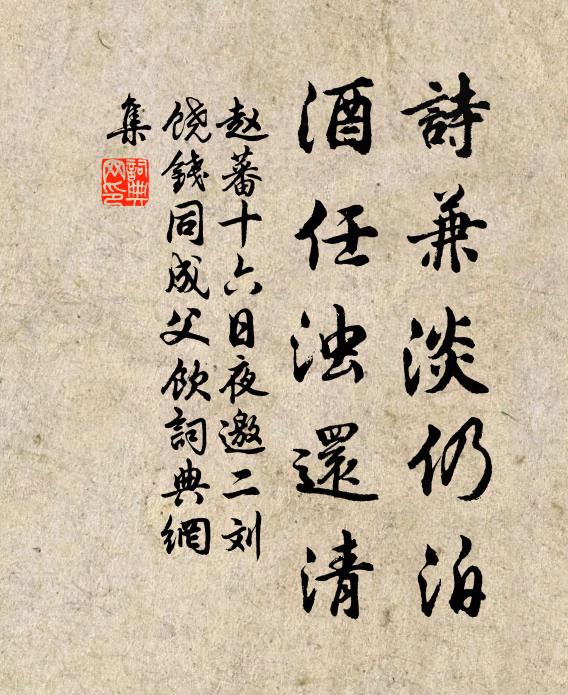 詩兼淡仍泊
酒任浊還清
赵蕃十六日夜邀二刘
饶錢同成父飲詞典網
集
詞典网印